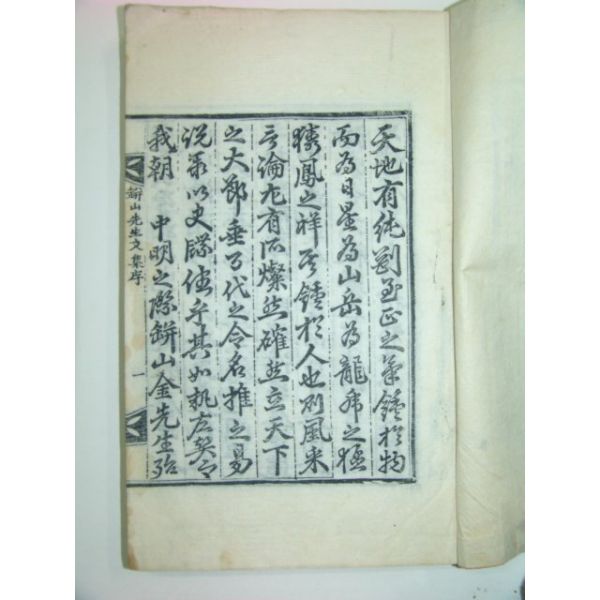 天地有純剛至正之氣鍾於物
而為日星為山岳為龍虎之猛
獜鳳之祥其鍾於人也則風采
言論尤有所燦然確然立天下
之大節垂万代之令名推之易
說以史牒乎其如執左契
我朝 中明之際缾山金先生殆
缾山先生文集序 一